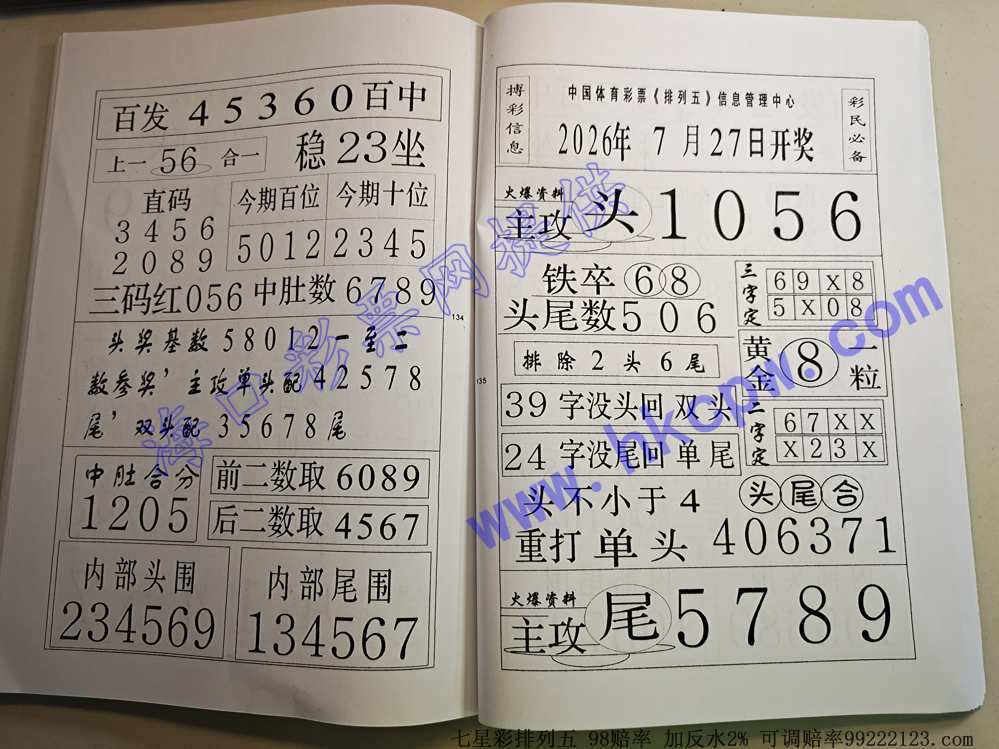 百发 45360 百中
上一 56 合一
稳23坐
直码
3456
2089
今期百位
5012
今期十位
2345
三码红056
中肚数6789
头奖基数58012一至二
数参奖’主攻单头配42578
尾’双头配35678尾
中肚合分
1205
前二数取6089
后二数取4567
内部头围
234569
内部尾围
134567
134
135
搏彩信息
中国体育彩票《排列五》信息管理中心
2026年7月27日开奖
彩民必备
火爆资料
主攻 头 1056
铁卒 68
头尾数506
三字定
69X8
5X08
排除2头6尾
黄金 8 一粒
39字没头回双头
24字没尾回单尾
二字定
67XX
X23X
头不小于4
头尾合
重打单头 406371
火爆资料
主攻 尾 5789
海口彩票网提供
www.hkcpw.com
七星彩排列五 98赔率 加反水2% 可调赔率99222123.com